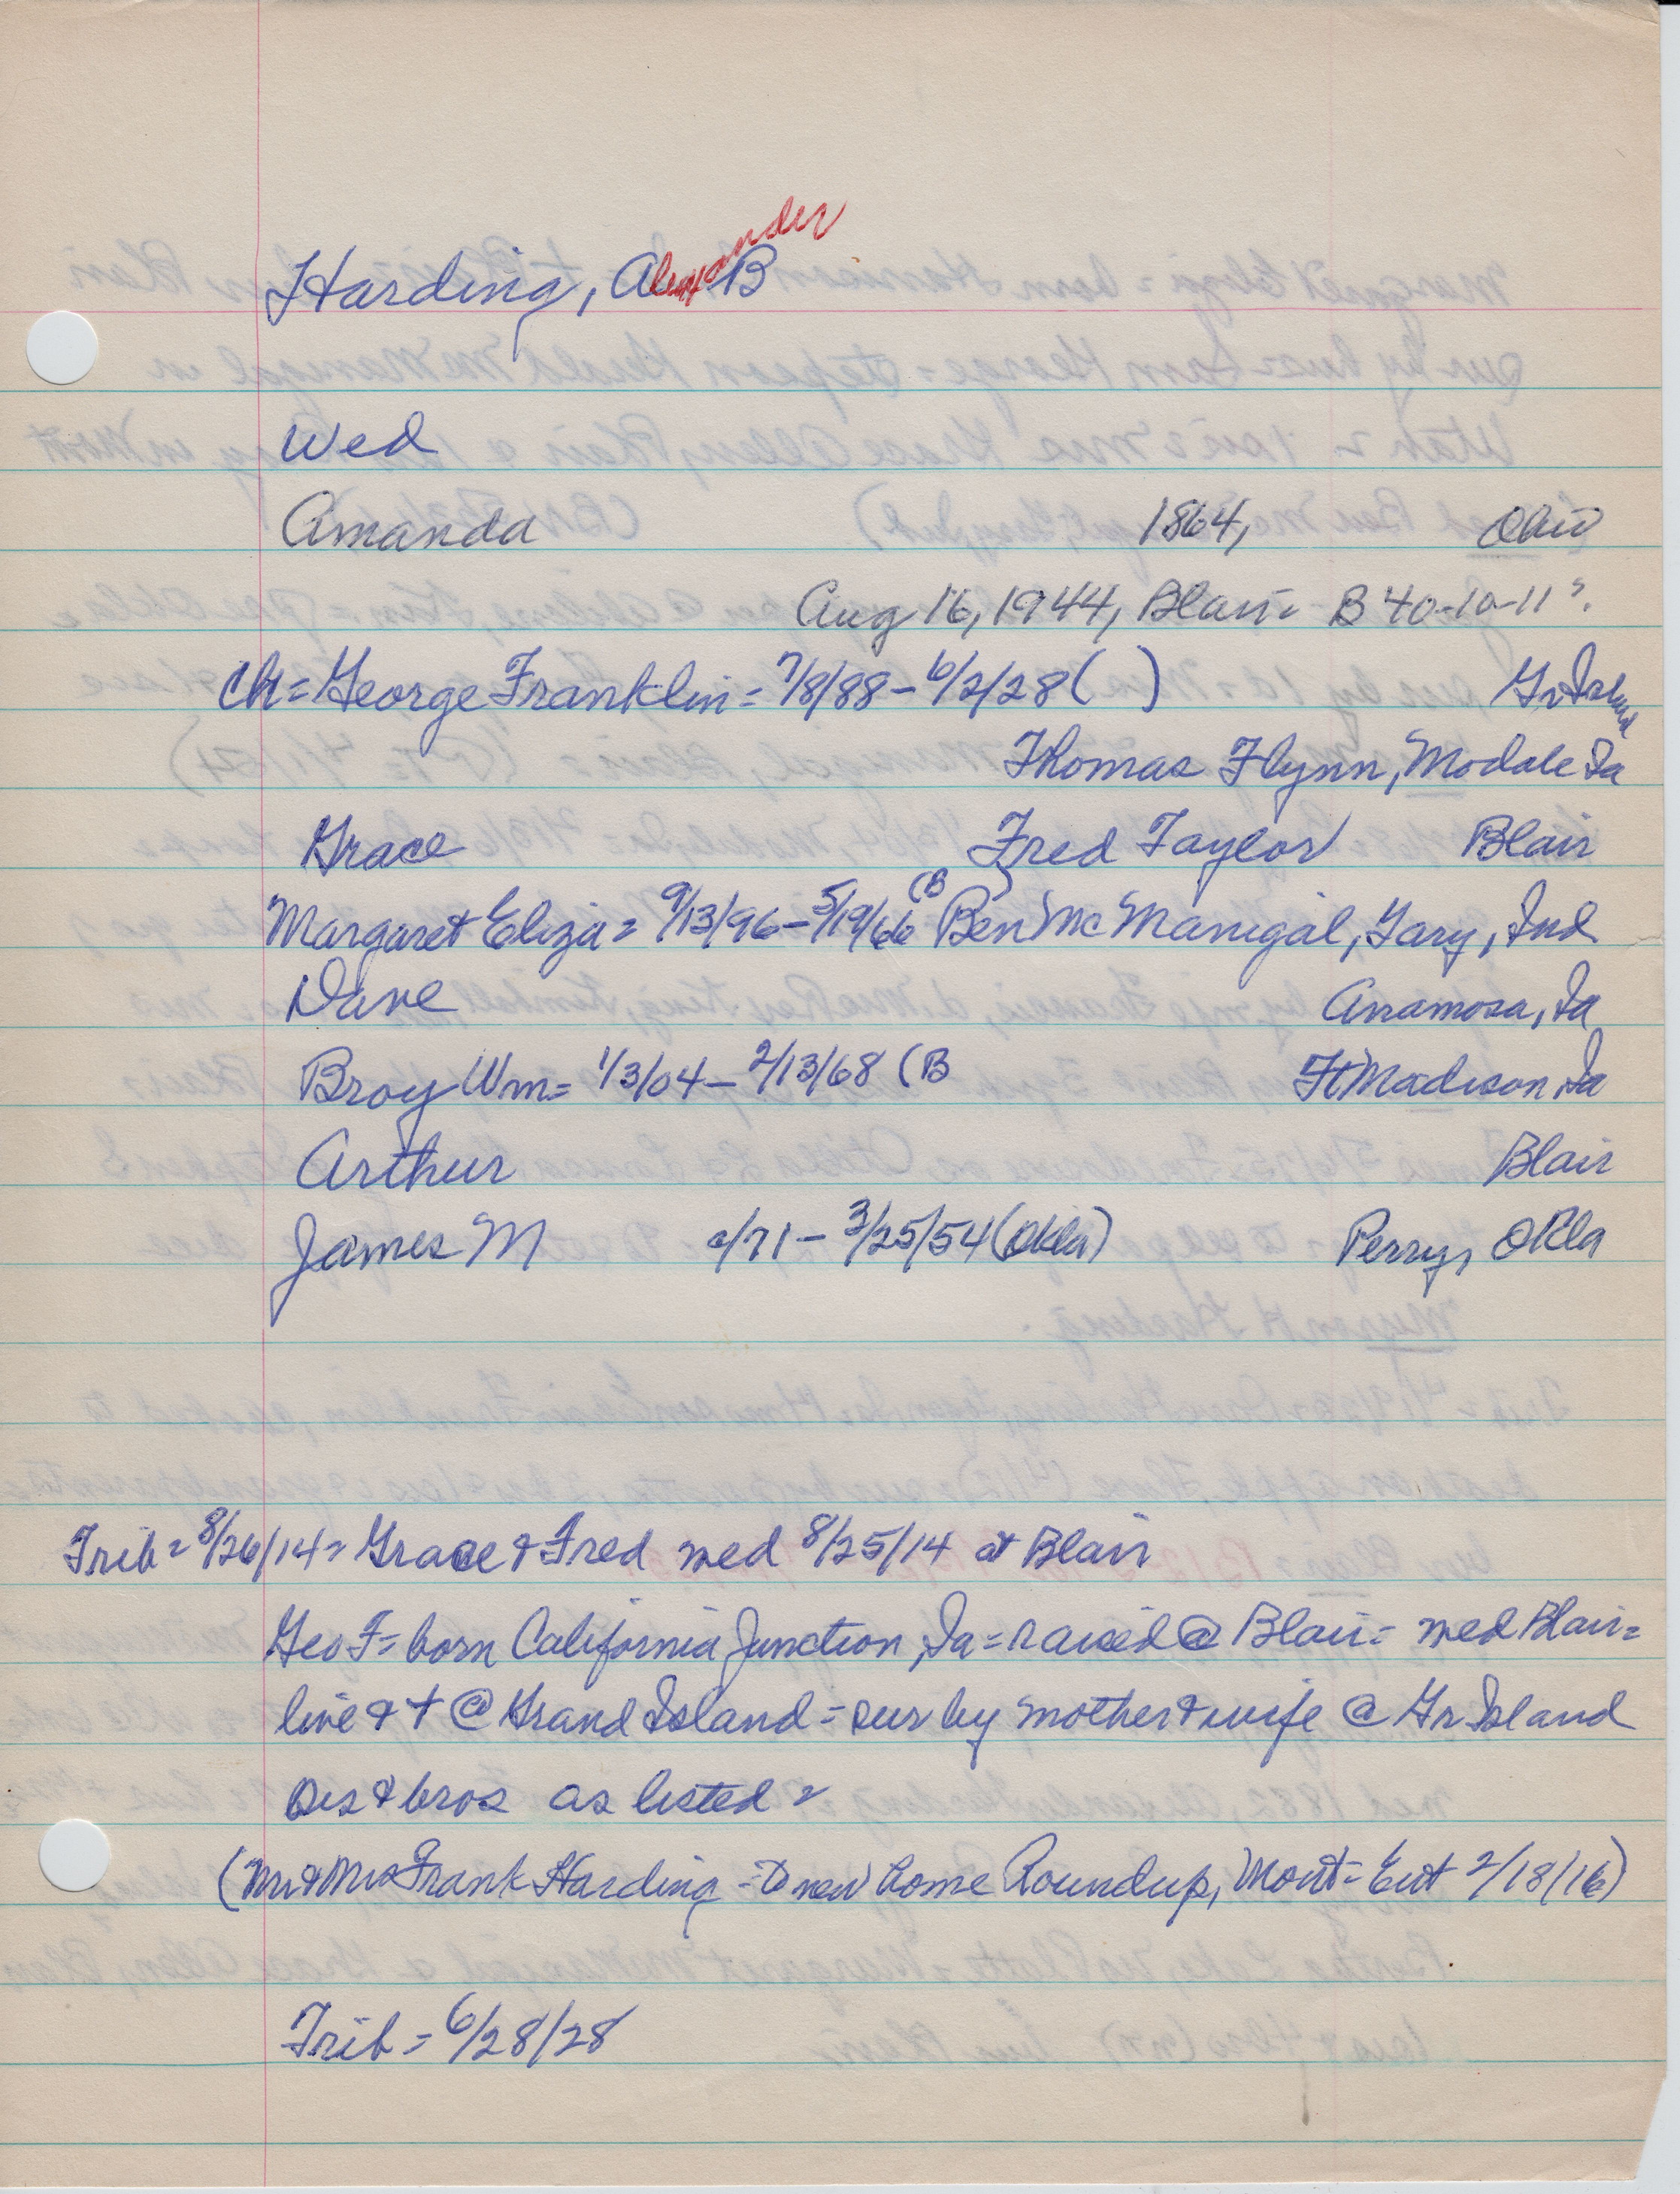 Harding, Alexander B
Wed
Amanda 1864, Ohio
Aug 16, 1944, Blair= B 40-10-11's.
Ch= George Franklin= 7/8/88 - 6/2/28 ( ) Gr Island
Thomas Flynn, Modale Ia
Grace Fred Taylor Blair
Margaret Eliza= 9/13/96 - 5/19/66 (B Ben McManigal, Gary, Ind
Dave Anamosa, Ia
Broy Wm= 1/3/04 - 2/13/68 (B Ft Madison, Ia
Arthur Blair
James M c/71 - 3/25/54 (Okla) Perry, Okla
Trib= 8/26/14= Grace & Fred wed 8/25/14 at Blair
Geo F= born California Junction, Ia= raised @ Blair= wed Blair=
live & + @ Grand Island= sur by mother & wife @ Gr Island
sis & bros as listed=
(Mr & Mrs Frank Harding - to new home Roundup, Mont= Ent 2/18/16)
Trib= 6/28/28